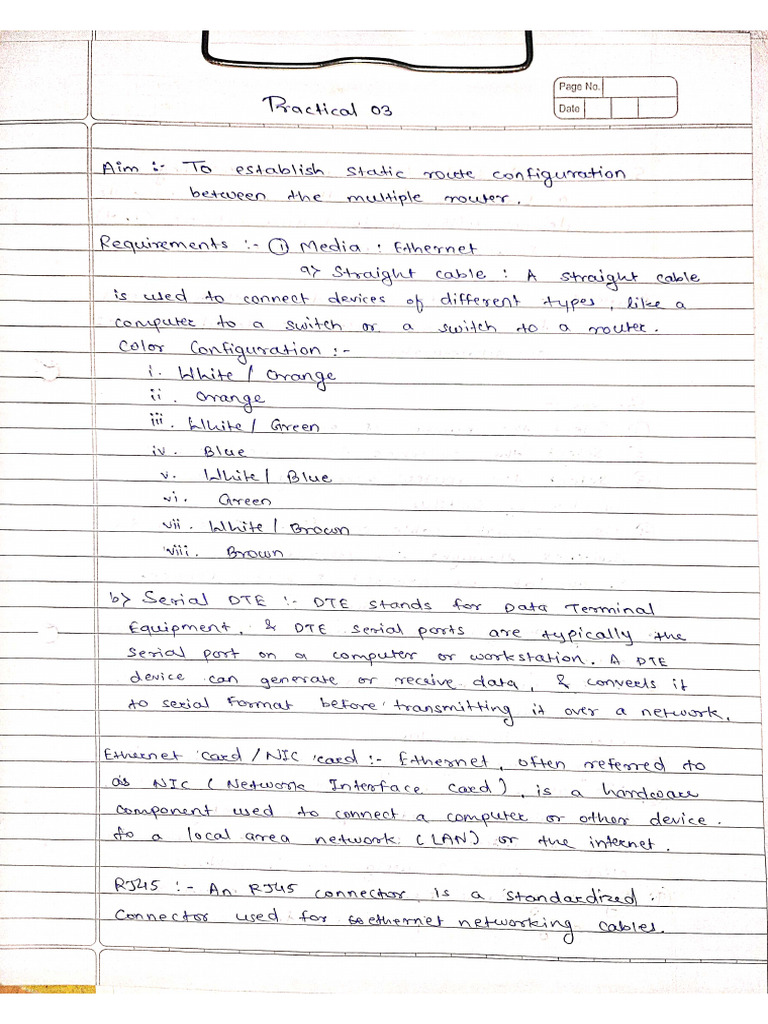 Page No.
Date
Practical 03
Aim :- To establish static route configuration
between the multiple router.
Requirements :- ① Media : Ethernet
a) Straight cable : A straight cable
is used to connect devices of different types, like a
computer to a switch or a switch to a router.
Color Configuration :-
i. White / Orange
ii. Orange
iii. White / Green
iv. Blue
v. White / Blue
vi. Green
vii. White / Brown
viii. Brown
b) Serial DTE :- DTE stands for Data Terminal
Equipment, & DTE serial ports are typically the
serial port on a computer or workstation. A DTE
device can generate or receive data, & converts it
to serial format before transmitting it over a network.
Ethernet card / NIC card :- Ethernet, often referred to
as NIC (Network Interface Card), is a hardware
component used to connect a computer or other device.
to a local area network (LAN) or the internet.
RJ45 :- An RJ45 connector is a standardized.
connector used for ethernet networking cables.